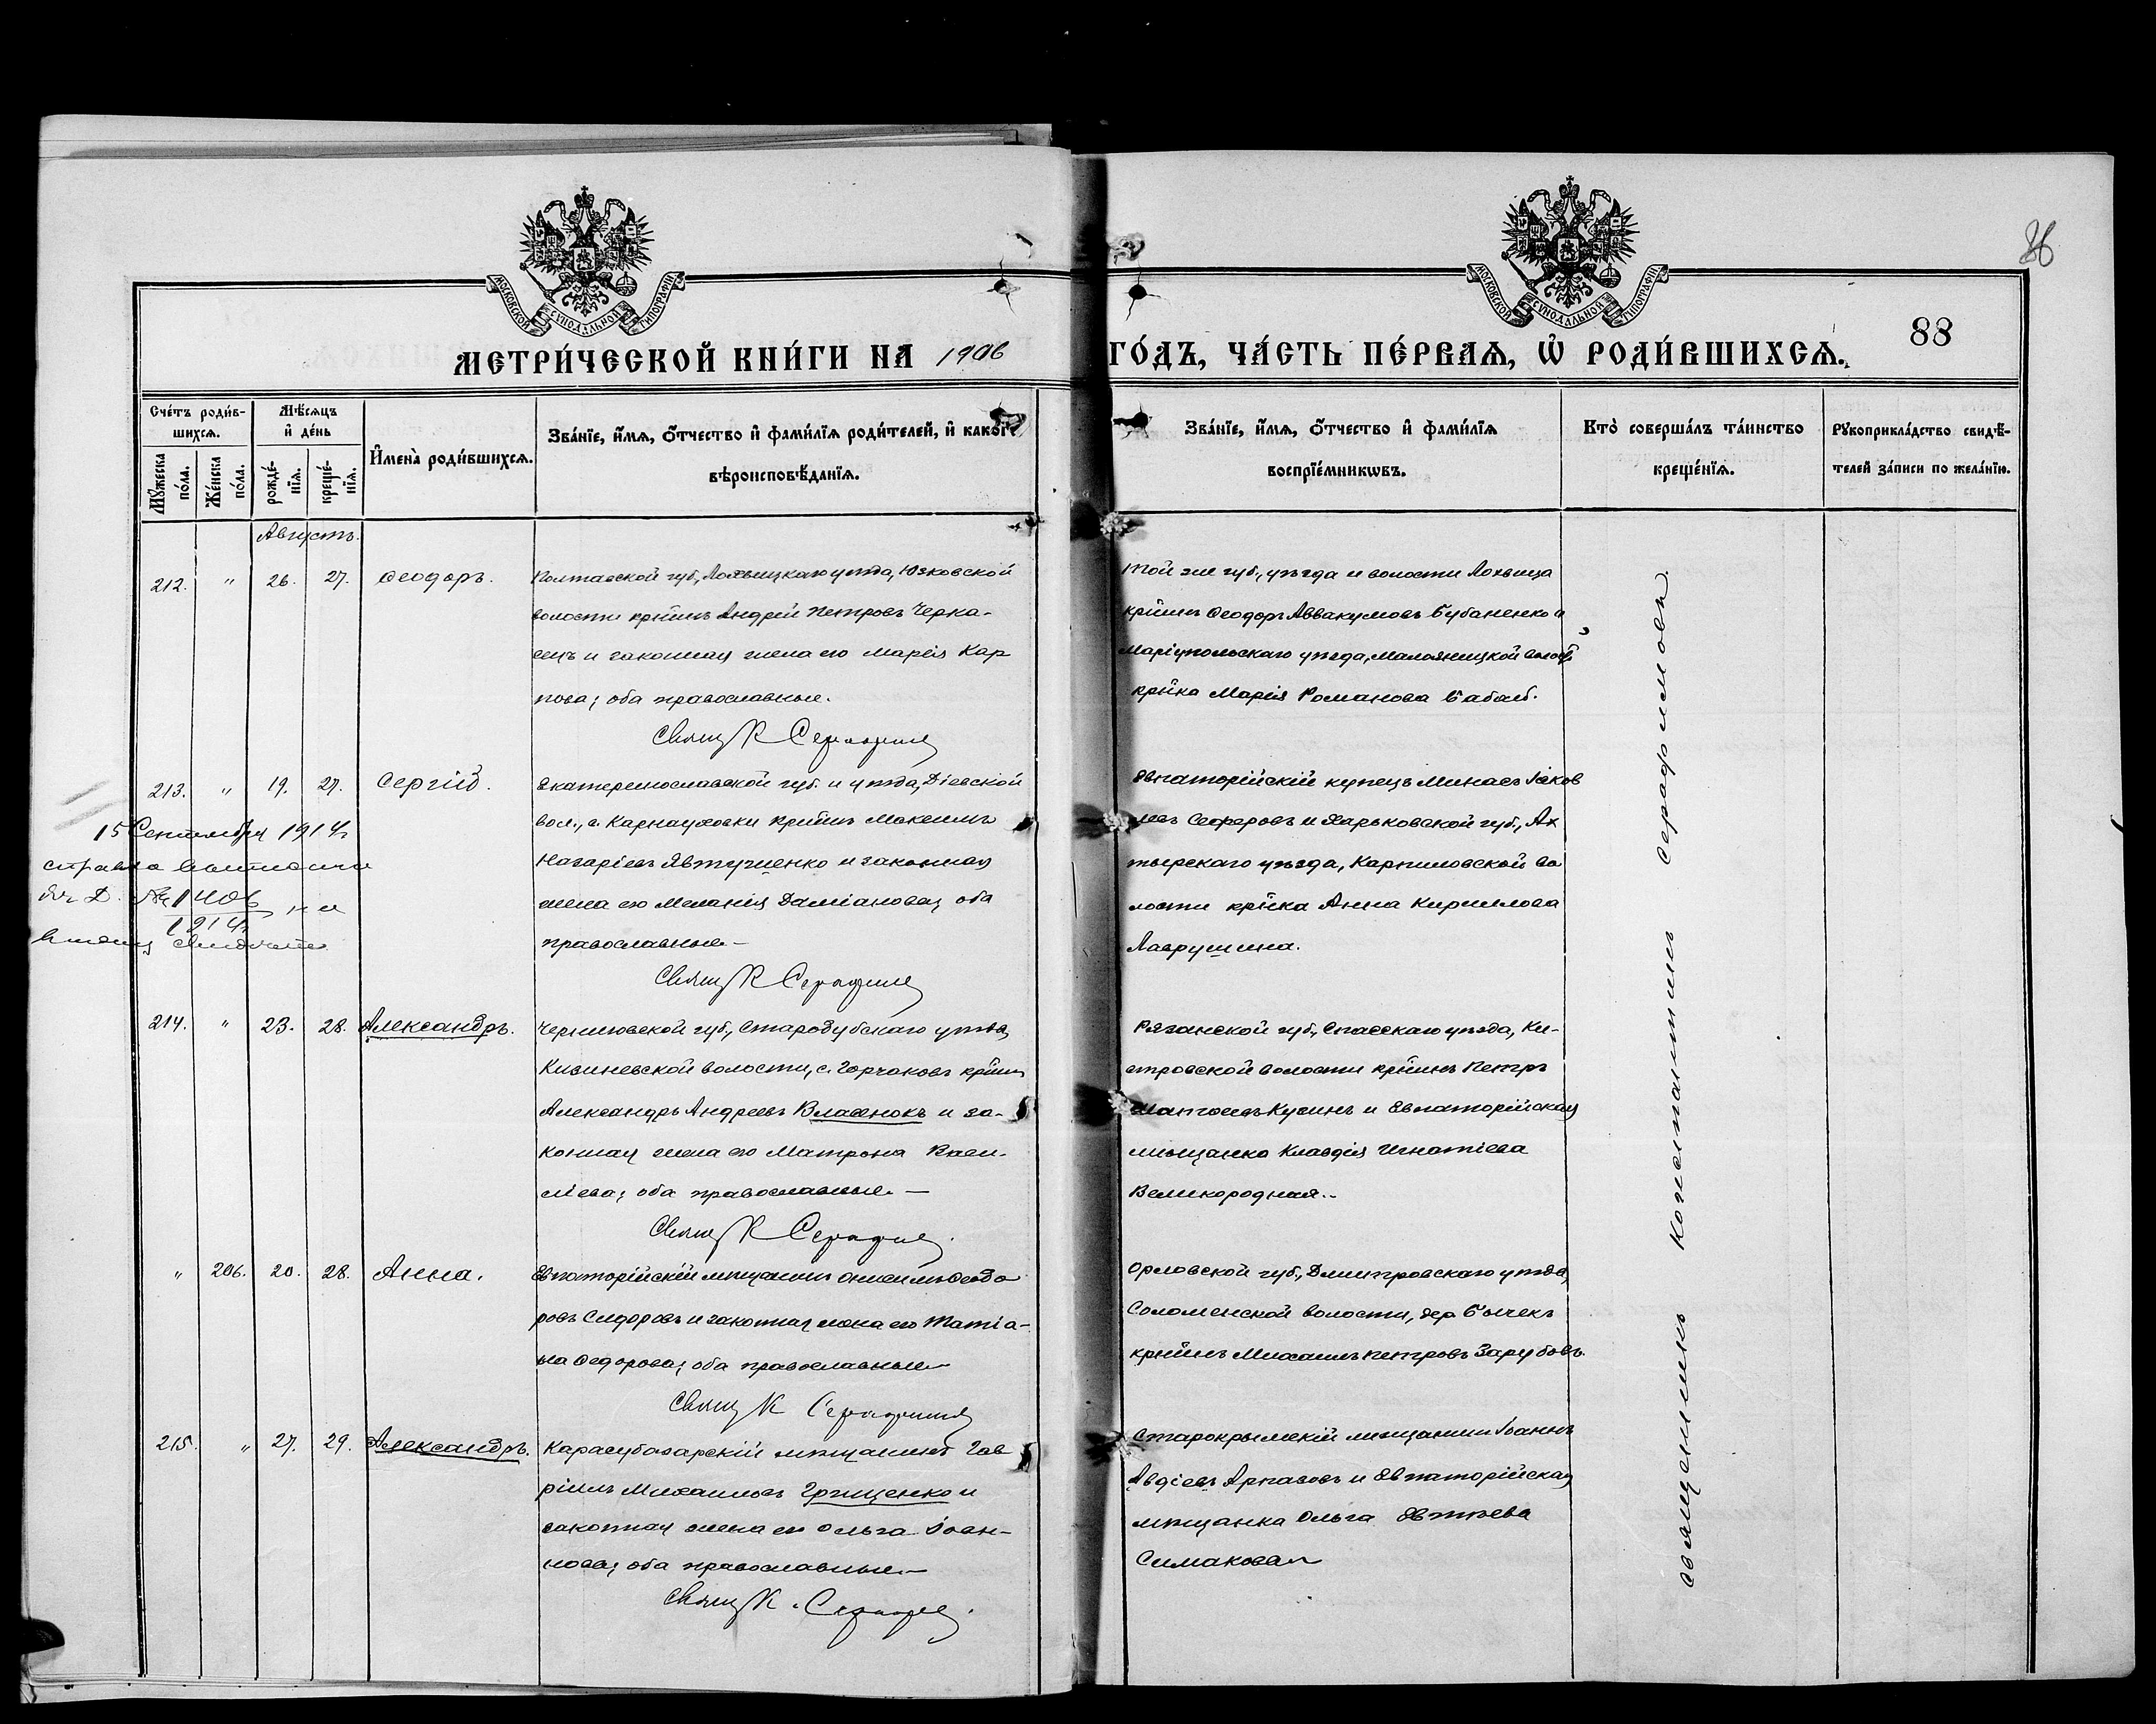 86
МОСКОВСКОЙ СѴНОДАЛЬНОЙ ТИПОГРАФІИ
МОСКОВСКОЙ СѴНОДАЛЬНОЙ ТИПОГРАФІИ
88
МЕТРИ́ЧЕСКОЙ КНИ́ГИ НА 1906 ГО́ДЪ, ЧА́СТЬ ПЕ́РВАѦ, Ѡ҆ РОДИ́ВШИХСѦ.
Сче́тъ роди́в-
шихсѧ.
Мѣ́сѧцъ
и҆ де́нь
Мꙋ́жеска
по́ла.
Же́нска
по́ла.
рожде́-
нїѧ.
креще́-
нїѧ.
И҆мена̀ роди́вшихсѧ.
Зва́нїе, и҆́мѧ, ѻ҆́тчество и҆ фами́лїѧ роди́телей, и҆ како́гѡ
вѣроисповѣ́данїѧ.
Зва́нїе, и҆́мѧ, ѻ҆́тчество и҆ фами́лїѧ
воспрїе́мникѡвъ.
Кто̀ соверша́лъ та́инство
креще́нїѧ.
Рꙋкоприкла́дство свидѣ́-
телей за́писи по жела́нїю.
Августъ.
212. " 26. 27. Ѳеодоръ.
Полтавской губ., Лохвицкаго уѣзда, Юсковской
волости кр–нинъ Андрей Петровъ Черка-
сецъ и законная жена его Марѳія Кар
пова; оба православные.
Свящ К Серафимов
Той же губ., уѣзда и волости Лохвица
кр–нинъ Ѳеодоръ Аввакумовъ Бубаненко и
Маріупольскаго уѣзда, Малоянисольской волости
кр–нка Марія Романова Бабаб.
213. " 19. 27. Сергій.
Екатеринославской губ. и уѣзда, Діевской
вол., с. Карнауховки кр–нинъ Максимъ
Назаріевъ Явтушенко и законная
жена его Меланія Даміанова; оба
православные.–
Свящ К Серафимов
Евпаторійскій купецъ Минаевъ Іаков
левъ Сеферовъ и Харьковской губ., Ах
тырскаго уѣзда, Карпиловской во
лости кр–нка Анна Кириллова
Лаврушина.
15 Сентября 1914 г
справка выписана
№ 1406
1914 г
214. " 23. 28. Александръ.
Черниговской губ., Стародубскаго уѣзда,
Кивиневской волости, с. Горчаковъ кр–нинъ
Александръ Андреевъ Власенокъ и за-
конная жена его Матрона Васи-
ліева; оба православные.–
Свящ К Серафимов.
Рязанской губ., Спасскаго уѣзда, Ки-
стровской волости кр–нинъ Петръ
Матѳеевъ Кузинъ и Евпаторійская
мѣщанка Клавдія Игнатіева
Великородная.–
" 206. 20. 28. Анна.
Евпаторійскій мѣщанинъ Онисимъ Ѳеодо
ровъ Сидоровъ и законная жена его Татіа-
на Ѳедорова; оба православные–
Свящ К Серафимов
Орловской губ., Дмитровскаго уѣзда,
Соломенской волости, дер. Бычекъ
кр–нинъ Михаилъ Петровъ Зарубовъ.
215. " 27. 29. Александръ.
Карасубазарскій мѣщанинъ Гав
ріилъ Михаиловъ Грищенко и
законная жена его Ольга Іоан-
нова; оба православные.–
Свящ К. Серафимов.
Старокрымскій мѣщанинъ Іоаннъ
Авдіевъ Арпазовъ и Евпаторійская
мѣщанка Ольга Евтѣева
Симакова
Священникъ Константинъ Серафимовъ.